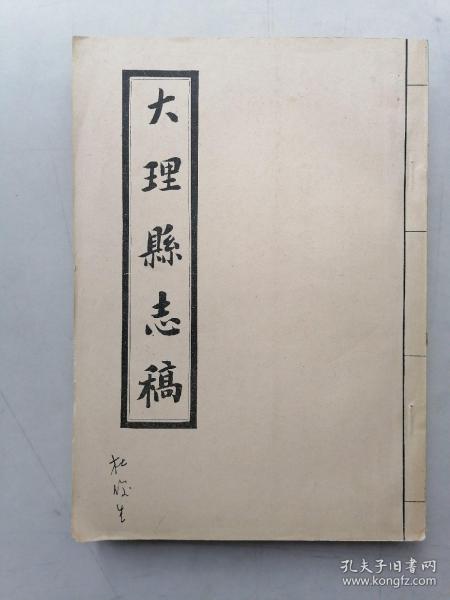 大理縣志稿
杜俊生
孔夫子旧书网
www.kongfz.com